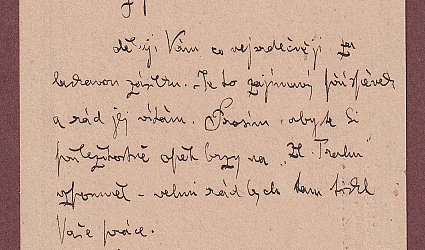 děkuji Vám co nejsrdečněji za
laskavou zásilku. Je to zajímavý příspěvek
a rád jej vítám. Prosím, abyste si
příležitostně opět brzy na „Zl. Prahu"
vzpomněl – velmi rád bych tam tiskl
Vaše práce.